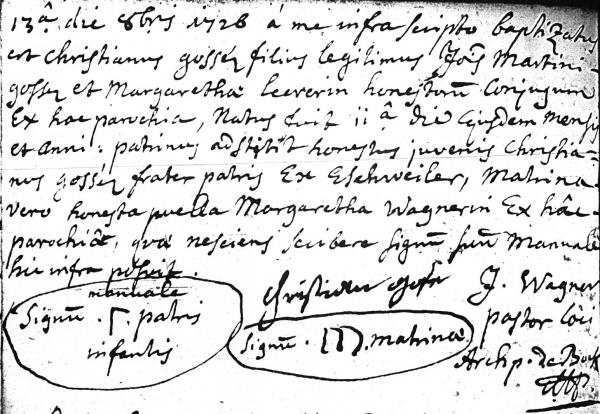 13ª die 8bris 1728 à me infra scripto baptizatus
est Christianus gossez filius legitimus Jois Martini
gossez et Margarethæ Leererin honestorũ Conjugum
Ex hac parochia, Natus fuit 11ª die Ejusdem mensis
et anni: patrinus adstitit honestus juvenis Christia-
nus gossez frater patris Ex Eschweiler, Matrina
vero honesta puella Margaretha Wagnerin Ex hâc
parochiâ, quæ nesciens scibere signũ suũ Manuale
hic infra posuit.
manuale
Signũ. Γ. patris
infantis
Christian
signũ. . matrinæ
J. Wagner
pastor loci
Archp. de